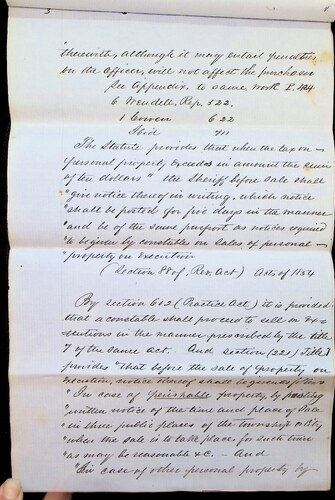 therewith, although it may entail penalties
on the officer, will not affect the purchaser
See Appendix to same work P. 424
6 Wendell, Rep. 522.
1 Cowen 622
Ibid 711
The Statute provides that when the tax on
"personal property exceeds in amount the sum
of ten dollars" the Sheriff before sale shall
"give notice thereof in writing, which notice
"shall be posted for five days in the manner
"and be of the same purport as notices required
"to be given by constables on sales of personal
"property on execution
(Section 88 of, Rev. Act) Acts of 1854
By section 602 (Practice Act) it is provided
that a constable shall proceed to sell on Exe
cutions in the manner prescribed by the title
7 of the same act. And section (221) Title 7
provides "that before the sale of property on
execution, notice thereof shall be given as follows
"In case of perishable property by posting
written notice of the time and place of Sale
"in three public places of the township or City
"when the sale is to take place for such time
"as may be reasonable &c. And
"In case of other personal property by